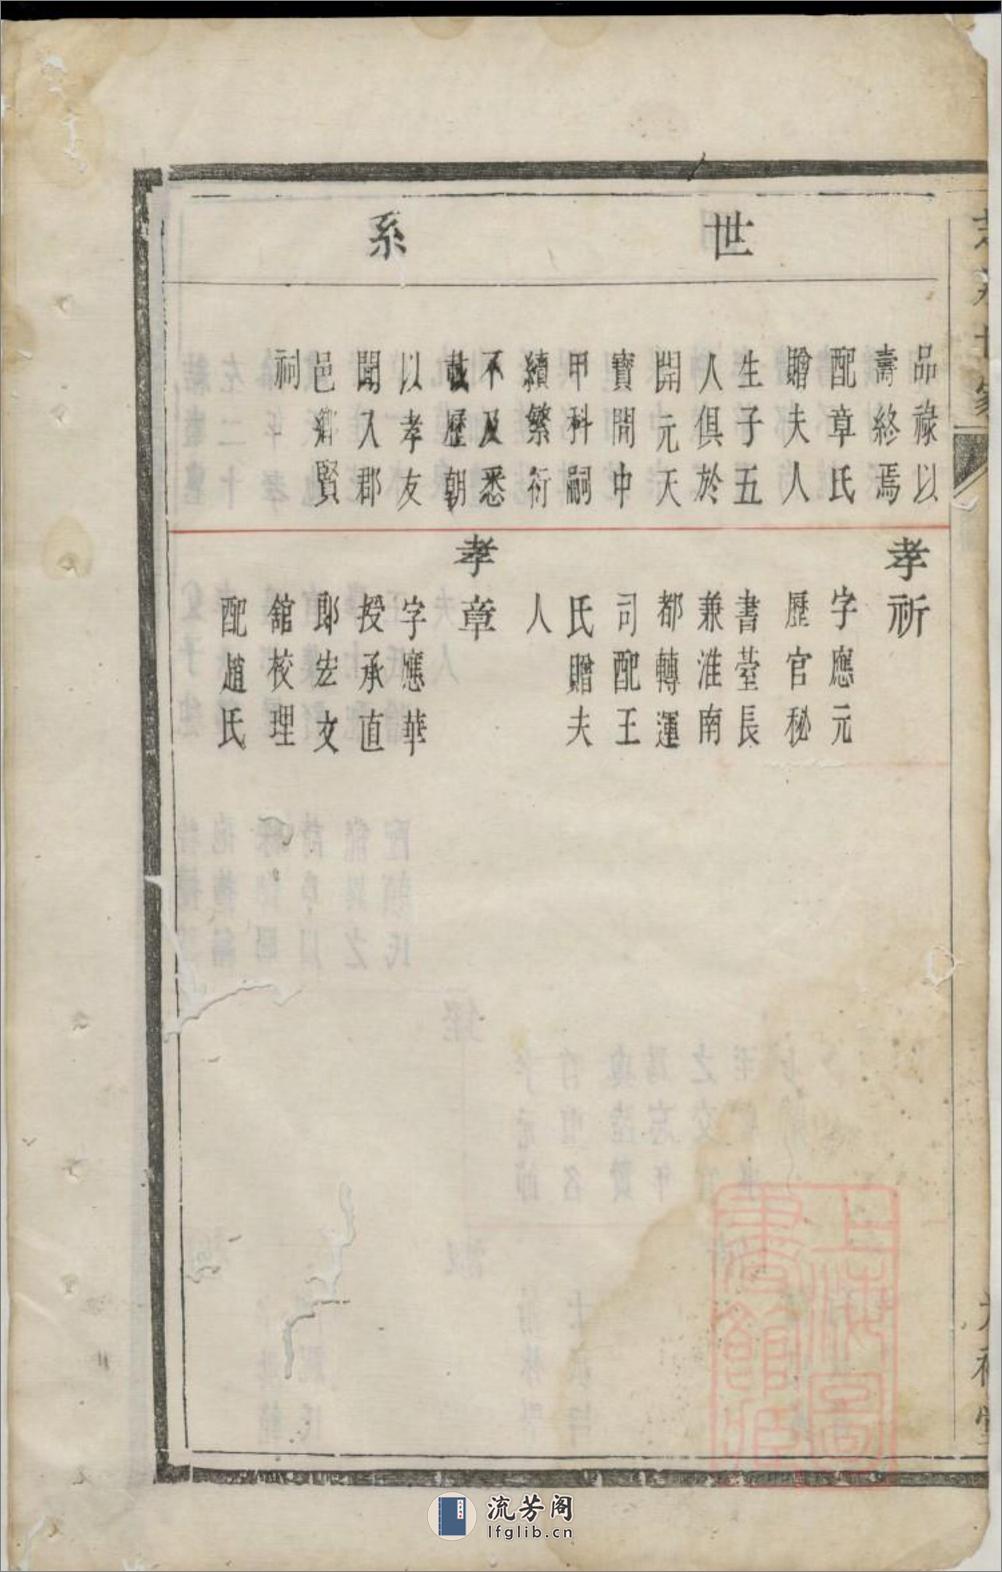 世系
品祿以
壽終焉
配章氏
贈夫人
生子五
人俱於
開元天
寶間中
甲科嗣
續繁衍
不及悉
載歷朝
以孝友
聞入郡
邑鄉賢
祠
孝祈
字應元
歷官秘
書䑓長
兼淮南
都轉運
司配王
氏贈夫
人
孝章
字應華
授承直
郎宏文
舘校理
配趙氏
上海圖書館藏
流芳阁
lfglib.cn